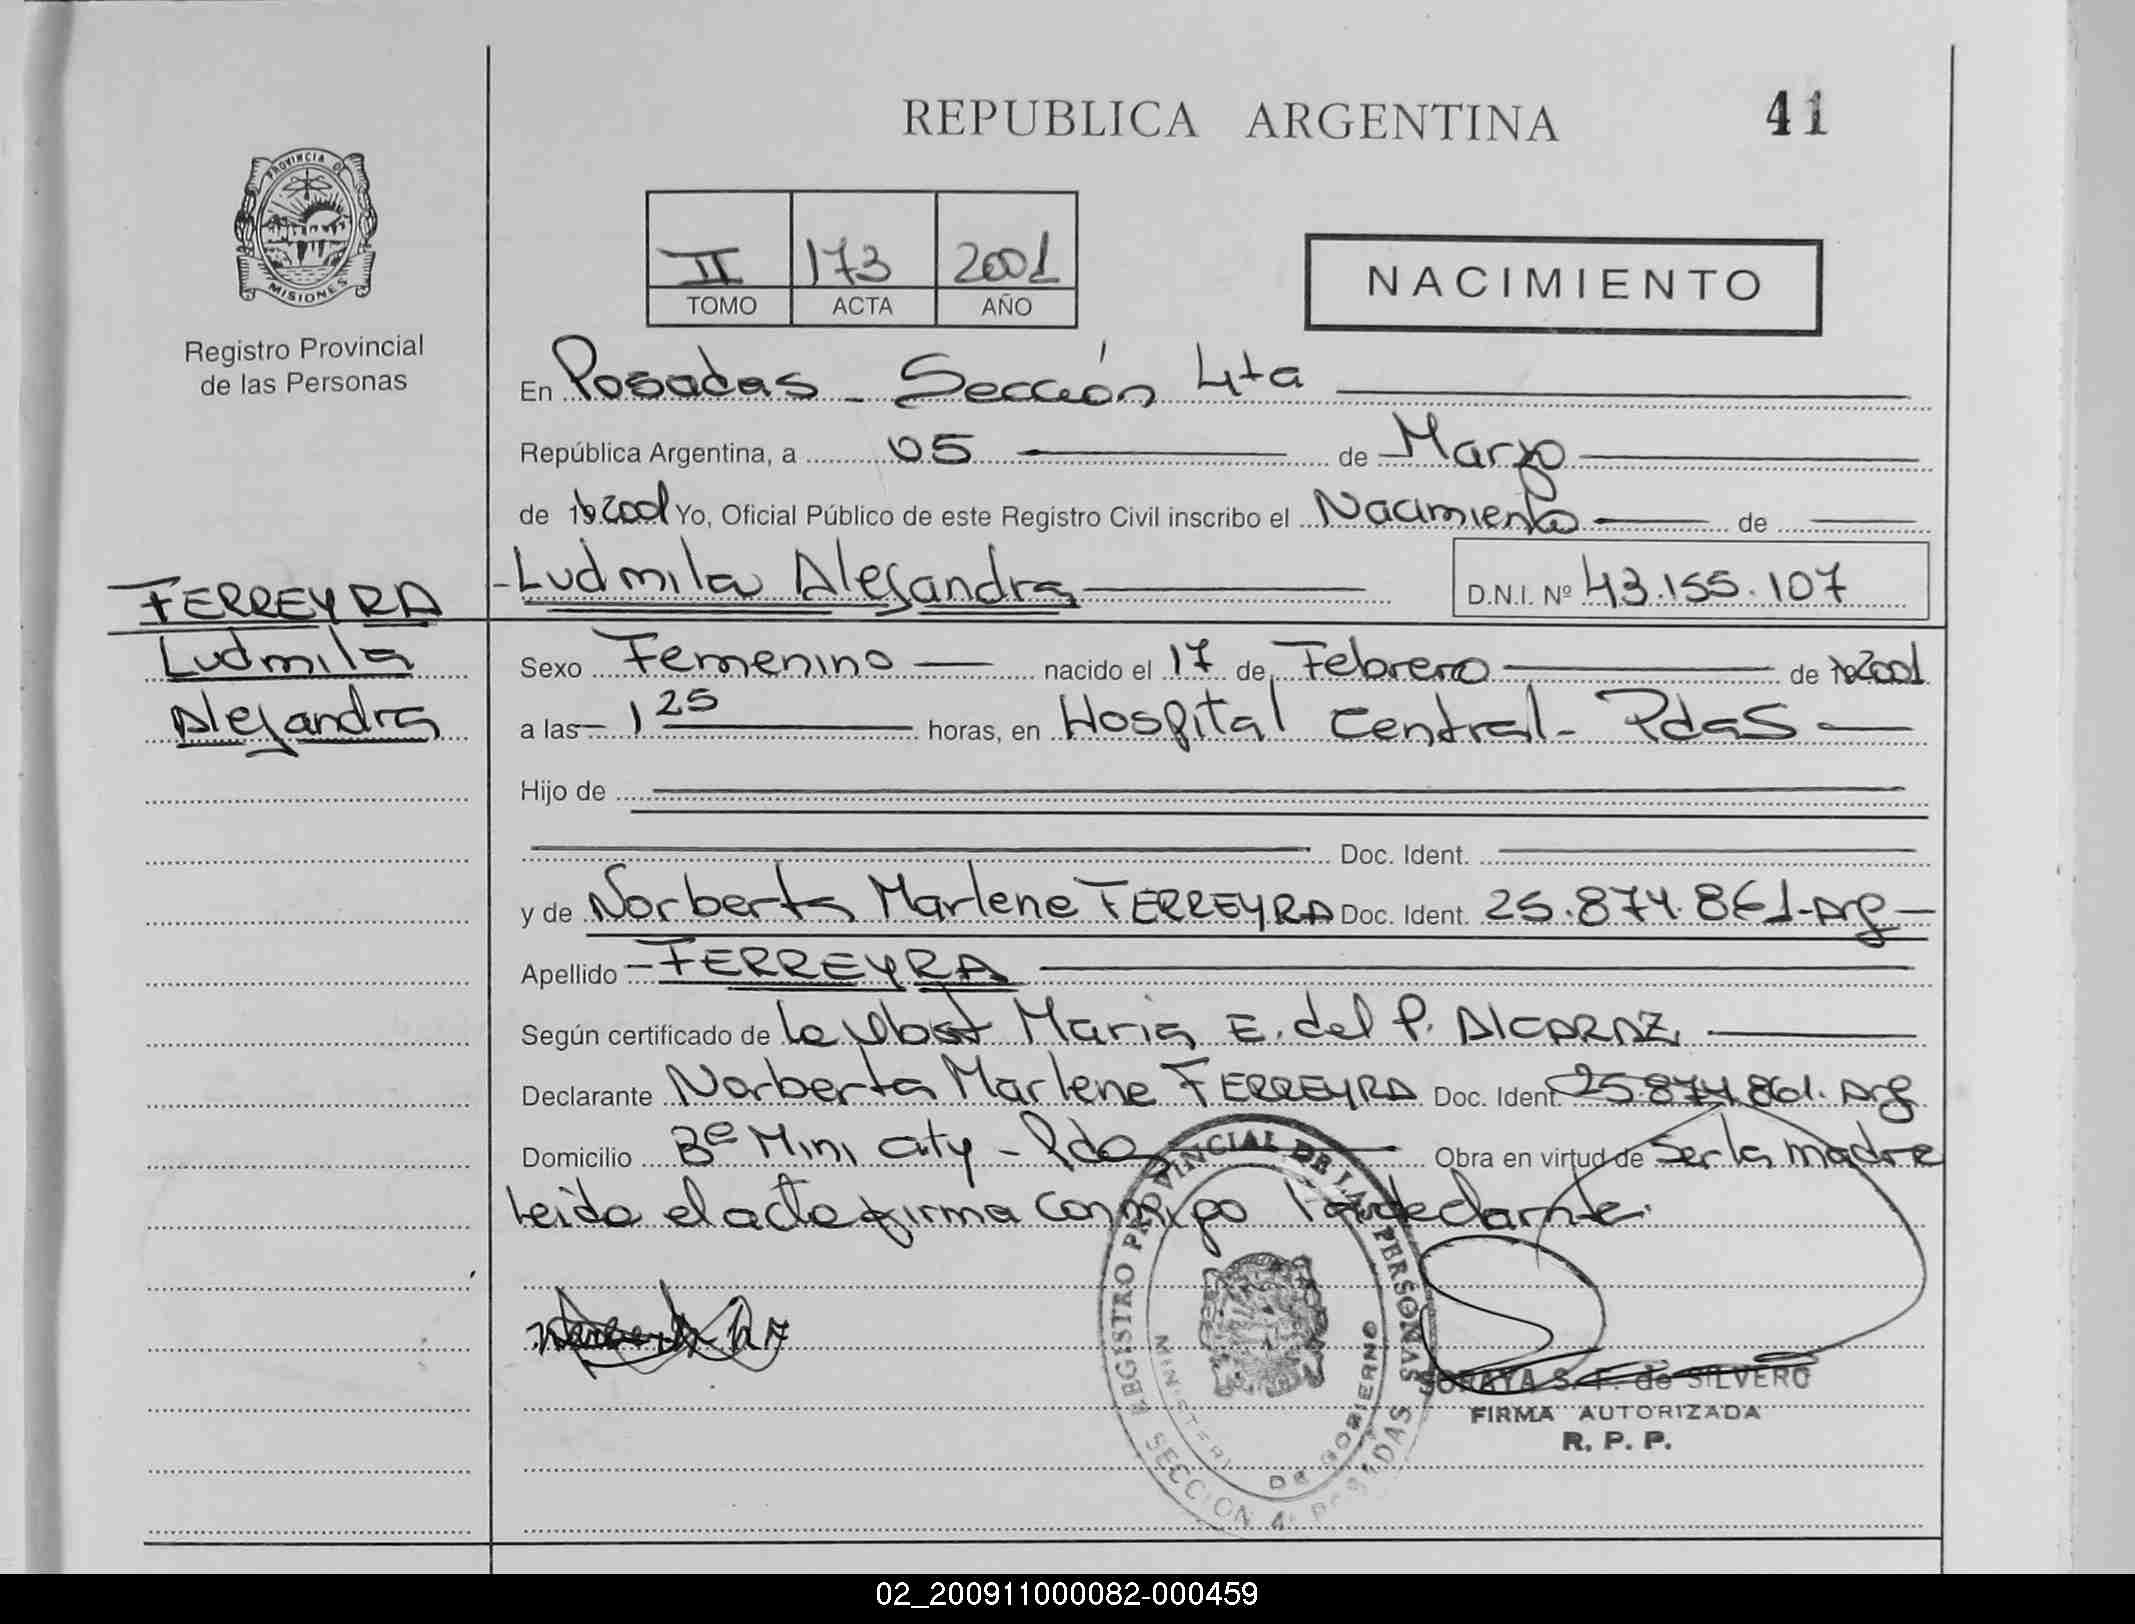 REPUBLICA ARGENTINA
41
PROVINCIA DE
MISIONES
Registro Provincial
de las Personas
II 173 2001
TOMO ACTA AÑO
NACIMIENTO
En Posadas - Sección 4ta
República Argentina, a 05 de Marzo
de 19 2001 Yo, Oficial Público de este Registro Civil inscribo el Nacimiento de
Ludmila Alejandra D.N.I. Nº 43.155.107
FERREYRA
Ludmila
Alejandra
Sexo Femenino nacido el 17 de Febrero de 19 2001
a las 1 25 horas, en Hospital Central - Pdas
Hijo de
Doc. Ident.
y de Norberta Marlene FERREYRA Doc. Ident. 25.874.861-Arg
Apellido FERREYRA
Según certificado de la Obst Maria E. del P. ALCARAZ
Declarante Norberta Marlene FERREYRA Doc. Ident. 25.874.861. Arg
Domicilio Bº Mini city - Pdas Obra en virtud de ser la madre
Leida el acta firma conmigo la declarante.
REGISTRO PROVINCIAL DE LAS PERSONAS
MINISTERIO DE GOBIERNO
SECCION 4ª POSADAS
SORAYA S. F. de SILVERO
FIRMA AUTORIZADA
R. P. P.
02_200911000082-000459